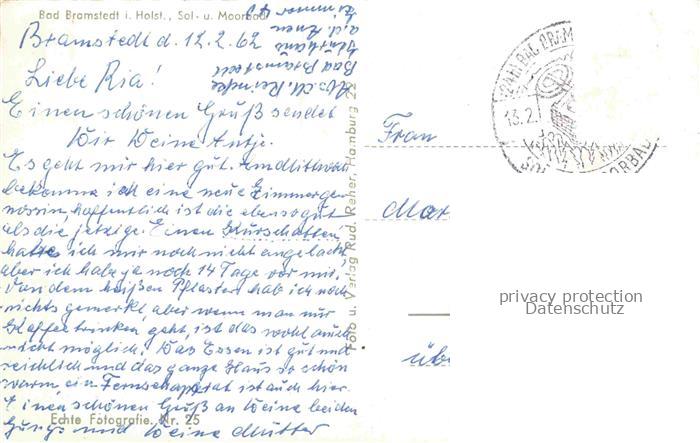 Bad Bramstedt i. Holst., Sol- u. Moorbad
Bramstedt d. 12.2.62
Abs. M. Reincke
Bad Bramstedt
Kurhaus
a. d. Auen
Zimmer 43
Liebe Ria!
Einen schönen Gruß sendet
Dir Deine Antje.
Es geht mir hier gut. Am Mittwoch
bekomme ich eine neue Zimmerge-
nossin, hoffentlich ist die ebenso gut
als die jetzige. Einen "Kurschatten"
hatte ich mir noch nicht angelacht,
aber ich habe ja noch 14 Tage vor mir.
Von dem heißen Pflaster hab ich noch
nichts gemerkt, aber wenn man nur
Kaffeetrinken geht, ist das wohl auch
nicht möglich. Das Essen ist gut und
reichlich und das ganze Haus so schön
warm, ein Fernsehapperat ist auch hier.
Einen schönen Gruß an Deine beiden
Jungs und Deine Mutter
Echte Fotografie. Nr. 25
Foto u. Verlag Rud. Reher, Hamburg 22
13.2.
MOORBAD
Frau
Mar
üb
privacy protection
Datenschutz